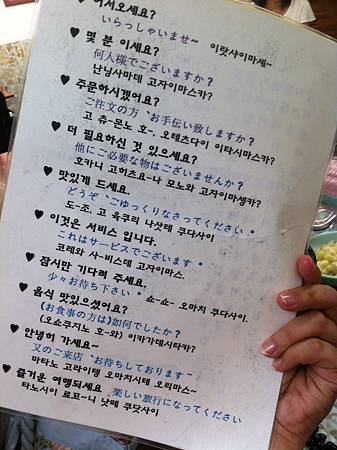 ♥ 어서오세요?
いらっしゃいませ~ 이랏샤이마세~
♥ 몇 분 이세요?
何人様でございますか?
난닝사마데 고자이마스카?
♥ 주문하시겠어요?
ご注文の方、お手伝い致しますか?
고 츄-몬노 호-, 오테츠다이 이타시마스카?
♥ 더 필요하신 것 있으세요?
他にご必要な物はございませんか?
호카니 고히츠요-나 모노와 고자이마셍카?
♥ 맛있게 드세요.
どうぞ、ごゆっくりなさってください。
도-조, 고 육쿠리 나삿테 쿠다사이
♥ 이것은 서비스 입니다.
これはサービスでございます。
코레와 사-비스데 고자이마스.
♥ 잠시만 기다려 주세요.
少々お待ち下さい。 쇼-쇼- 오마치 쿠다사이.
♥ 음식 맛있으셨어요?
(お食事の方は)如何でしたか?
(오쇼쿠지노 호-와) 이카가데시타카?
♥ 안녕히 가세요~
又のご来店、お待ちしております~
마타노 고라이텡 오마치시테 오리마스~
♥ 즐거운 여행되세요 楽しい旅行になってください
타노시이 료꼬~니 낫떼 쿠닷사이